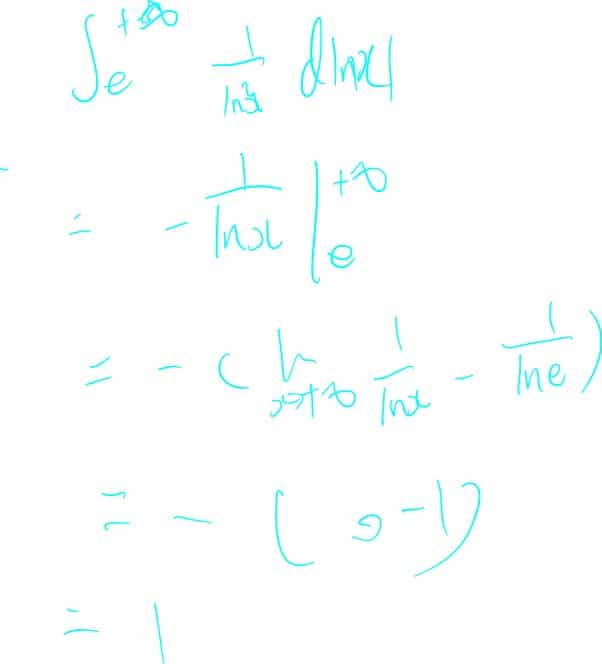 ∫_e^{+∞} \frac{1}{ln²x} dlnx
= - \frac{1}{lnx} |_e^{+∞}
= - ( lim_{x→+∞} \frac{1}{lnx} - \frac{1}{lne} )
= - ( 0 - 1 )
= 1